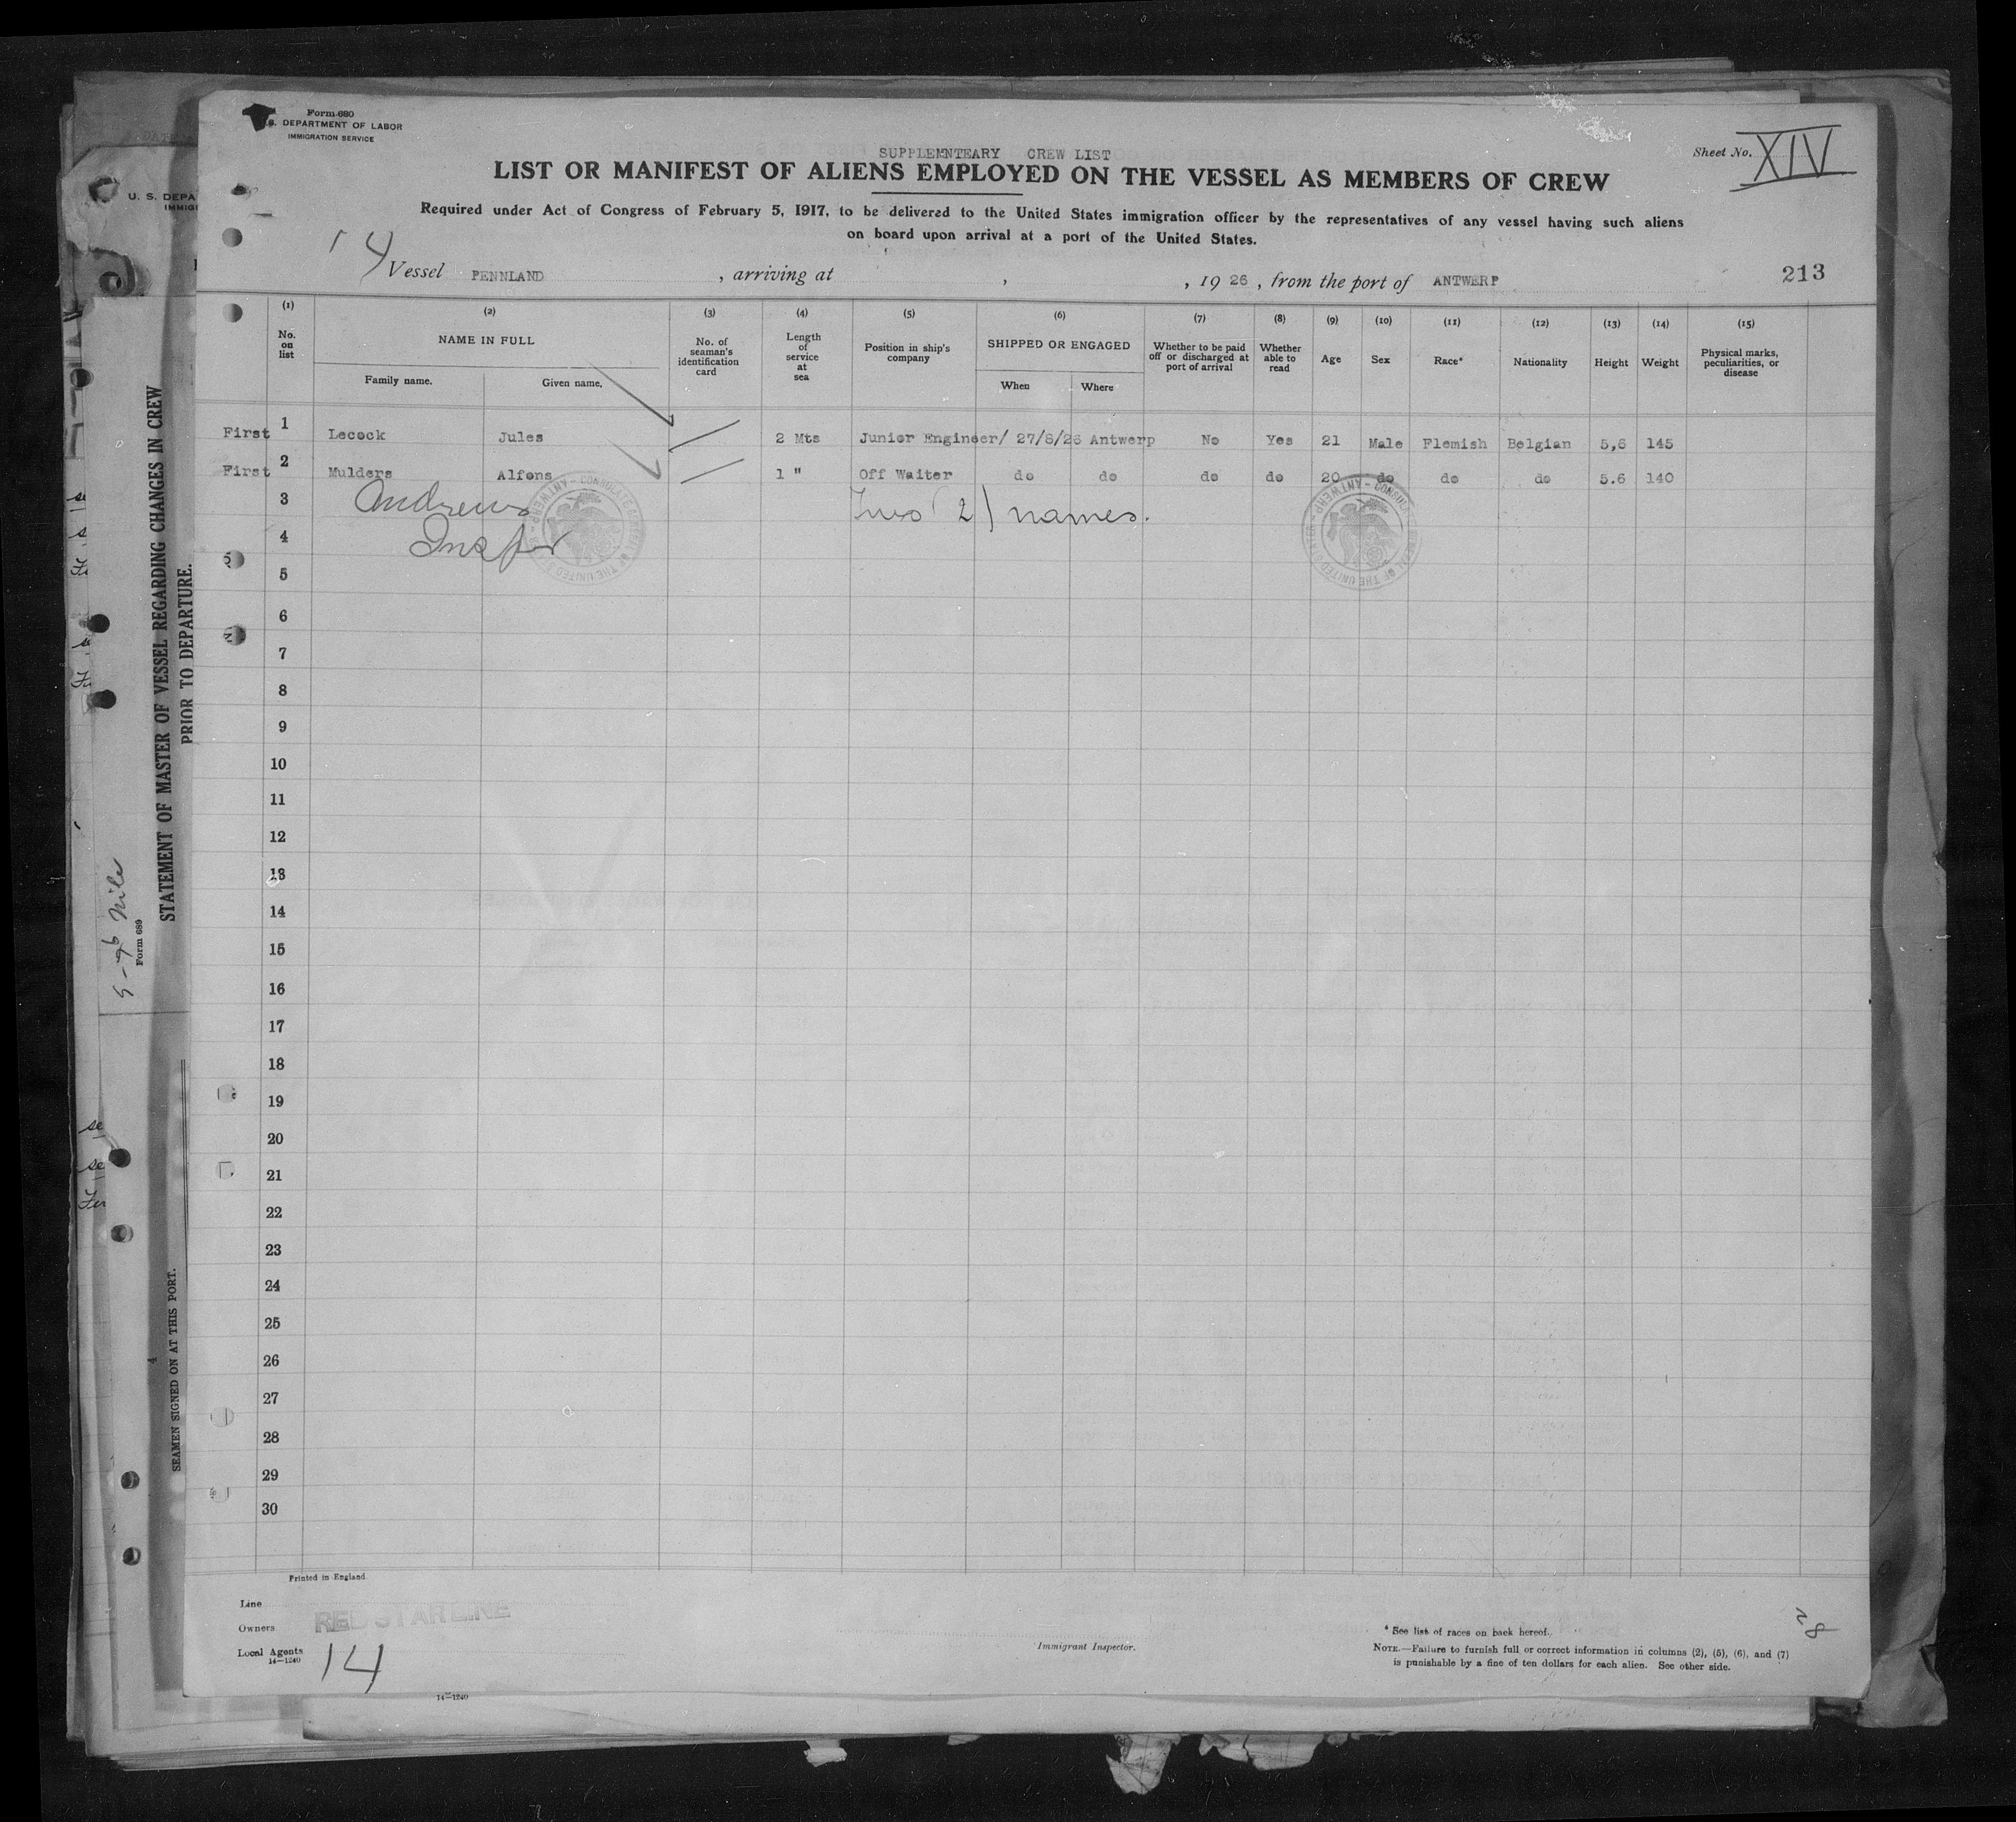 Form 680
DEPARTMENT OF LABOR
IMMIGRATION SERVICE
SUPPLEMNTEARY CREW LIST
Sheet No. XIV
LIST OR MANIFEST OF ALIENS EMPLOYED ON THE VESSEL AS MEMBERS OF CREW
Required under Act of Congress of February 5, 1917, to be delivered to the United States immigration officer by the representatives of any vessel having such aliens
on board upon arrival at a port of the United States.
14
Vessel PENNLAND, arriving at , , 1926, from the port of ANTWERP
213
(1) (2) (3) (4) (5) (6) (7) (8) (9) (10) (11) (12) (13) (14) (15)
No. on list
NAME IN FULL
Family name. Given name.
No. of seaman's identification card
Length of service at sea
Position in ship's company
SHIPPED OR ENGAGED
When Where
Whether to be paid off or discharged at port of arrival
Whether able to read
Age
Sex
Race*
Nationality
Height
Weight
Physical marks, peculiarities, or disease
First 1 Lecock Jules 2 Mts Junior Engineer/ 27/8/26 Antwerp No Yes 21 Male Flemish Belgian 5,6 145
First 2 Mulders Alfons 1 " Off Waiter do do do do 20 do do do 5.6 140
3 Andrews Two (2) names.
4 Inspr
5
6
7
8
9
10
11
12
13
14
15
16
17
18
19
20
21
22
23
24
25
26
27
28
29
30
Printed in England
Line
Owners RED STAR LINE
Local Agents
14—1240
14
Immigrant Inspector.
* See list of races on back hereof.
NOTE.—Failure to furnish full or correct information in columns (2), (5), (6), and (7)
is punishable by a fine of ten dollars for each alien. See other side.
28
14—1240
U. S. DEPA
IMMIG
STATEMENT OF MASTER OF VESSEL REGARDING CHANGES IN CREW
PRIOR TO DEPARTURE.
Form 689
SEAMEN SIGNED ON AT THIS PORT.
4